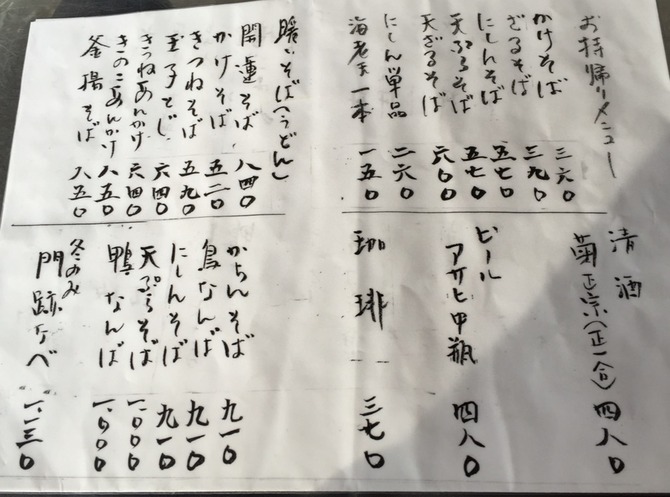 お持帰りメニュー
かけそば 三六〇
ざるそば 三九〇
にしんそば 五七〇
天ぷらそば 五七〇
天ざるそば 六〇〇
にしん単品 二六〇
海老天一本 一五〇
暖いそば(うどん)
開運そば 八四〇
かけそば 五二〇
きつねそば 五九〇
玉子とじ 六四〇
きつねあんかけ 六四〇
きのこあんかけ 八五〇
釜揚そば 八五〇
清酒
菊正宗(正一合) 四八〇
ビール
アサヒ中瓶 四八〇
珈琲 三七〇
からんそば 九一〇
鳥なんば 九一〇
にしんそば 九一〇
天ぷらそば 一、〇〇〇
鴨なんば 一、〇〇〇
冬のみ
門跡なべ 一、一三〇